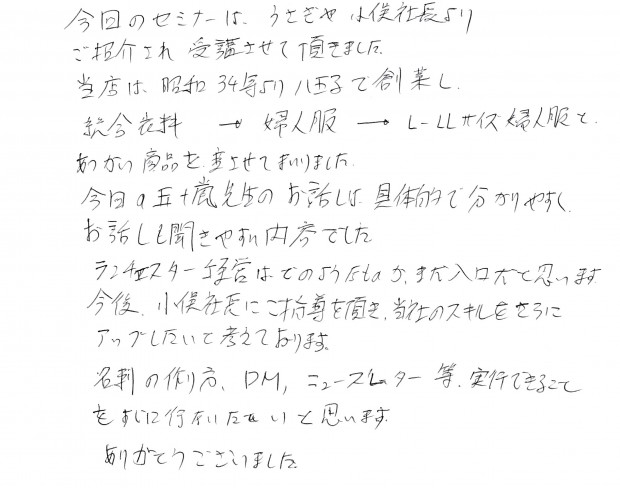 今回のセミナーは、うさぎや 小俣社長より
ご紹介され 受講させて頂きました。
当店は、昭和34年より八王子で創業し、
総合衣料 → 婦人服 → L-LLサイズ婦人服と、
あつかい商品を変させてまいりました。
今日の五十嵐先生のお話しは、具体的で分かりやすく、
お話しも聞きやすい内容でした
ランチェスター経営はどのようなものか、まだ入口だと思います。
今後、小俣社長にご指導を頂き、当社のスキルをさらに
アップしたいと考えております。
名刺の作り方、DM、ニュースレター等、実行できること
をすぐに行ないたいと思います。
ありがとうございました。